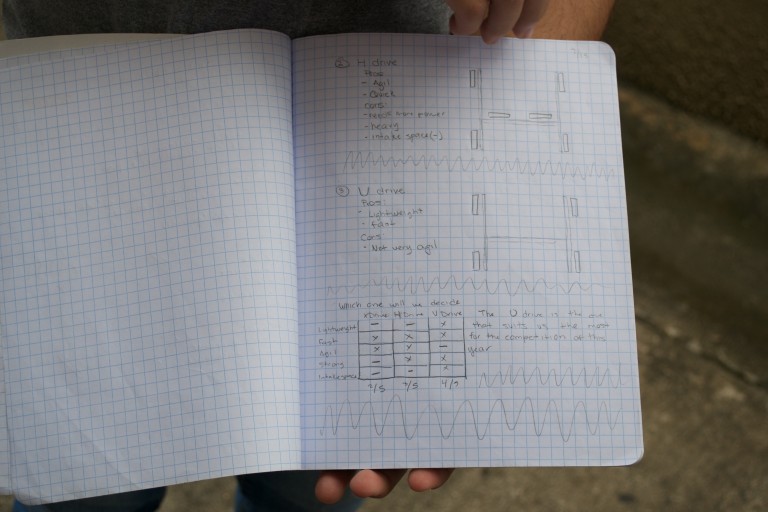 ② H drive
Pros:
- Agil
- Quick
Cons:
- power
- heavy
- intake space(-)
③ U drive
Pros:
- Lightweight
- Fast
Cons:
- Not very agil
Which one will we decide
XDrive HDrive UDrive
Lightweight — — X
Fast X X X
Agil X X —
Strong — X X
Intakespace — — X
2/5 3/5 4/5
The U drive is the one
that suits us the most
for the competition of this
year